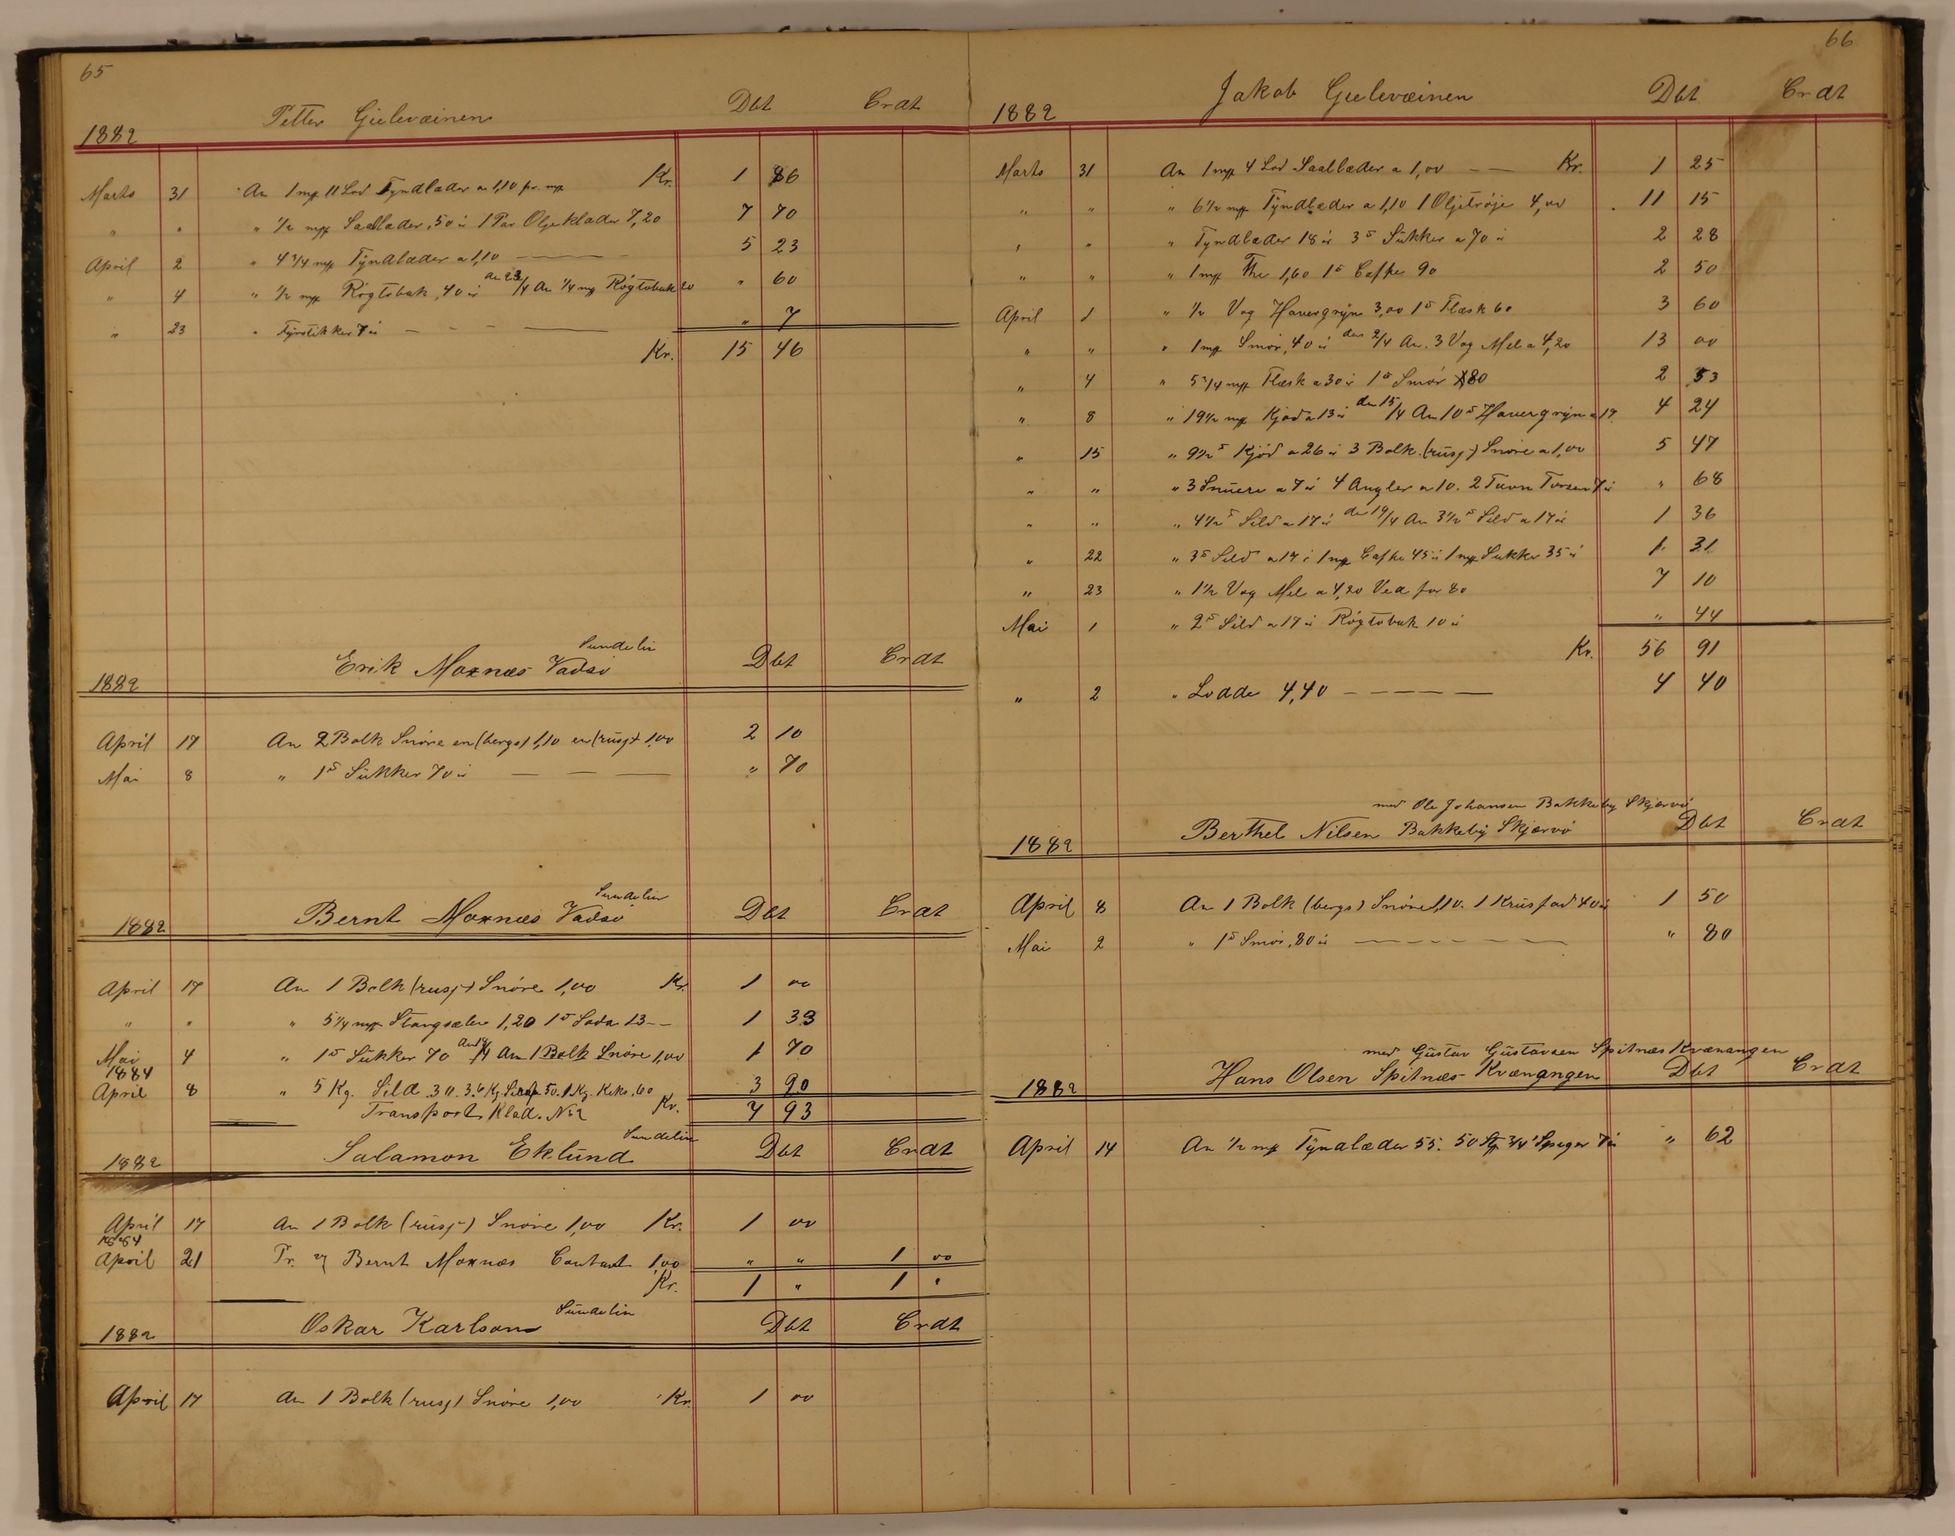 65
1882 Petter Gulevæinen Dbt Crdt
Marts 31 An 1 mp 11 Lod Tyndlæder a 1,10 pr. mp Kr. 1 86
" " " 1/2 mp Saallæder ,50 ü 1 Par Oljeklæder 7,20 7 70
April 2 " 4 3/4 mp Tyndlæder a 1,10 5 23
" 4 " 1/2 mp Rögtobak ,40 ü den 23/4 An 1/4 mp Rögtobak 20 " 60
" 23 " Fyrstikker 7 ü " 7
Kr. 15 46
Sundelin
1882 Erik Moxnæs Vadsö Dbt Crdt
April 17 An 2 Bolk Snöre en (bergs) 1,10 en (rusj) 1,00 2 10
Mai 8 " 1 ᵗᵗ Sükker 70 ü " 70
Sundelin
1882 Bernt Moxnæs Vadsö Dbt Crdt
April 17 An 1 Bolk (rusj) Snöre 1,00 Kr. 1 00
" " " 5 1/4 mp Stangsæbe 1,20 1 ᵗᵗ Soda 13 1 33
Mai 4 " 1 ᵗᵗ Sükker 70 An 1 Bolk Snöre 1,00 1 70
1884
April 8 " 5 Kg. Sild 3 Kg. Sirup 50. 1 Kg. Keks ,60 3 90
Transport Klad. No 2 Kr. 7 93
Sundelin
1882 Salamon Eklünd Dbt Crdt
April 17 An 1 Bolk (rüsj) Snöre 1,00 Kr. 1 00
1884
April 21 Pr. Bernt Moxnæs Contant 1,00 " " 1 00
Kr. 1 " 1 "
Sündelin
1882 Oskar Karlson Dbt Crdt
April 17 An 1 Bolk (rusj) Snöre 1,00 Kr. 1 00
66
1882 Jakob Gulevæinen Dbt Crdt
Marts 31 An 1 mp 4 Lod Saallæder a 1,00 Kr. 1 25
" " " 6 1/2 mp Tyndlæder a 1,10 1 Oljetröje 4,00 11 15
" " " Tyndlæder 18 ü 3 ᵗᵗ Sükker a 70 ü 2 28
" " " 1 mp The 1,60 1 ᵗᵗ Caffe 90 2 50
April 1 " 1/2 Vog Havergryn 3,00 1 ᵗᵗ Flæsk 60 3 60
" " " 1 mp Smör ,40 ü den 2/4 An. 3 Vog Mel a 4,20 13 00
" 4 " 5 3/4 mp Flæsk a 30 ü 1 ᵗᵗ Smör 80 2 53
" 8 " 19 1/2 mp Kjöd a 13 ü den 15/4 An 10 ᵗᵗ Havergryn a 17 4 24
" 15 " 9 1/2 ᵗᵗ Kjöd a 26 ü 3 Bolk. (rüsj) Snöre a 1,00 5 47
" " " 3 Snüere a 7 ü 4 Angler a 10. 2 Tavn 7 ü " 68
" " " 4 1/2 ᵗᵗ Sild a 17 ü den 19/4 An 3 1/2 ᵗᵗ Sild a 17 ü 1 36
" 22 " 3 ᵗᵗ Sild a 17 ü 1 mp Caffe 45 ü 1 mp Sukker 35 ü 1 31
" 23 " 1 1/2 Vog Mel a 4,20 Ved for 80 7 10
Mai 1 " 2 ᵗᵗ Sild a 17 ü Rögtobak 10 ü " 44
Kr. 56 91
" 2 " Lodde 4,40 4 40
med Ole Johansen Bakkeby Skjærvö
1882 Berthel Nilsen Bakkeby Skjærvö Dbt Crdt
April 8 An 1 Bolk (bergs) Snöre 1,10. 1 Krüsfad 40 ü 1 50
Mai 2 " 1 ᵗᵗ Smör ,80 ü " 80
med Güstav Güstavsen Spitnæs Kvænangen
1882 Hans Olsen Spitnæs Kvænangen Dbt Crdt
April 14 An 1/2 mp Tyndlæder 55. 50 Stp 3/4" Spiger 7 ü " 62